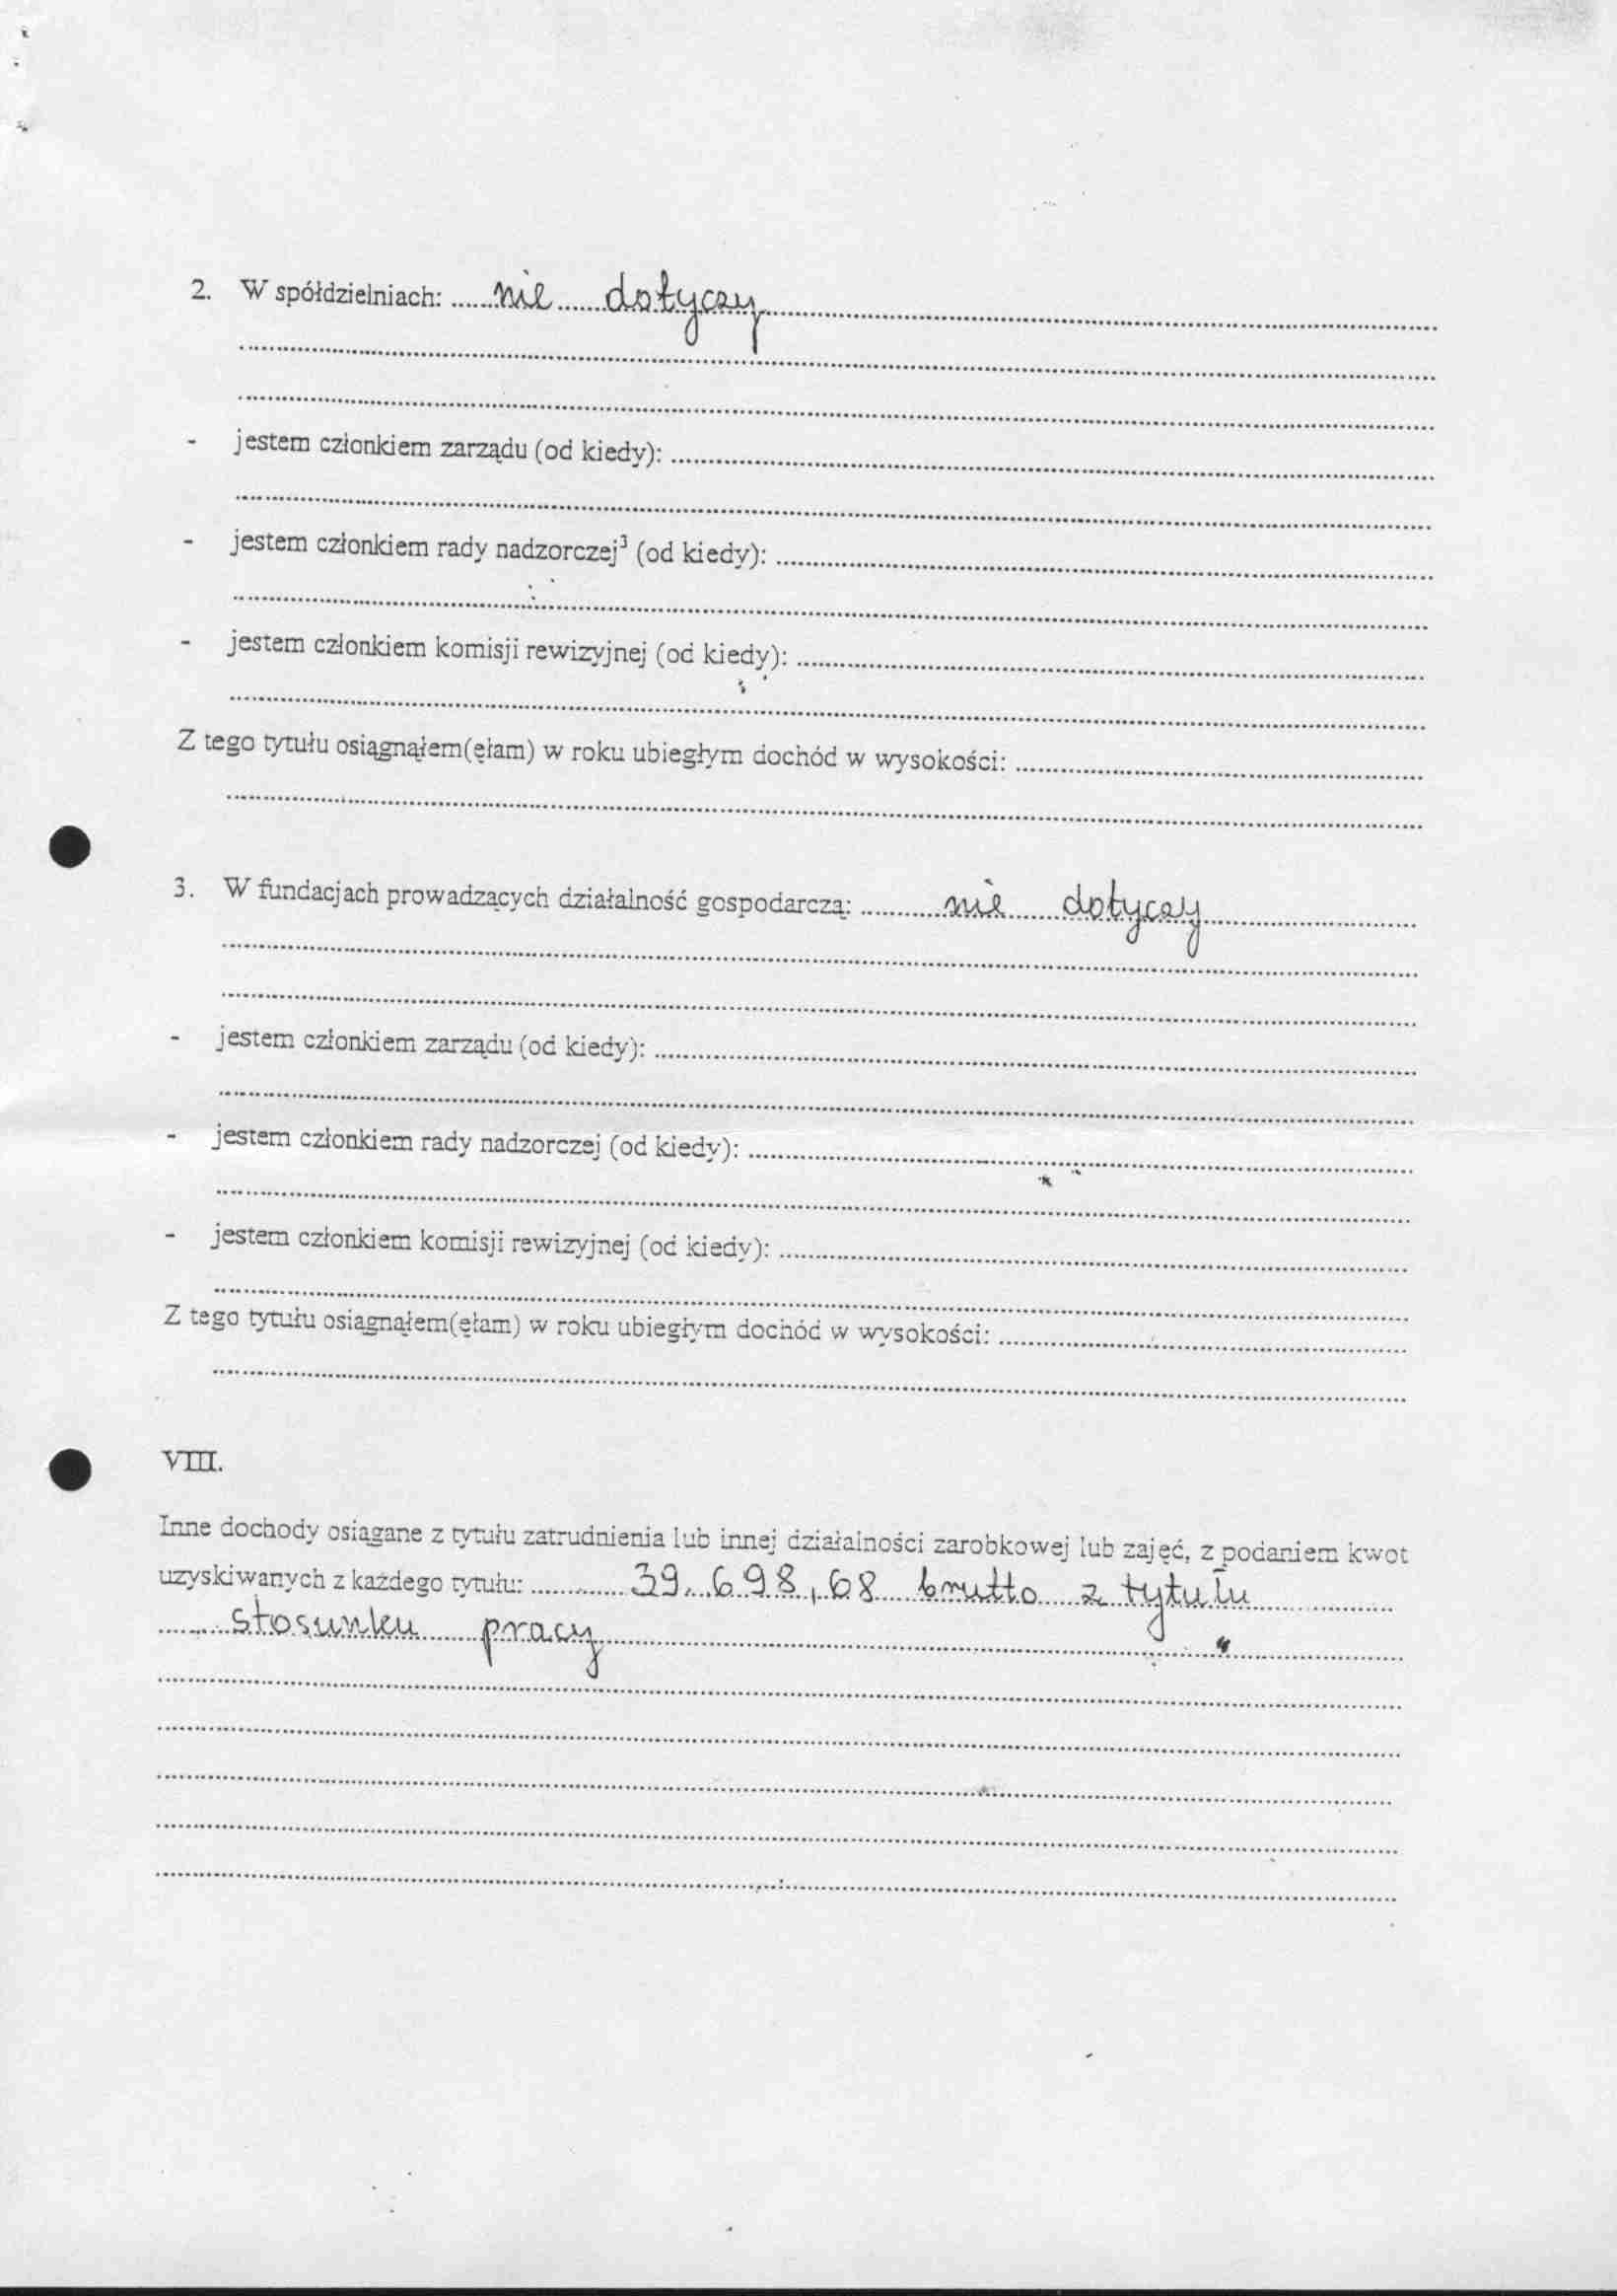 2. W spółdzielniach: nie dotyczy
- jestem członkiem zarządu (od kiedy):
- jestem członkiem rady nadzorczej³ (od kiedy):
- jestem członkiem komisji rewizyjnej (od kiedy):
Z tego tytułu osiągnąłem(ęłam) w roku ubiegłym dochód w wysokości:
3. W fundacjach prowadzących działalność gospodarczą: nie dotyczy
- jestem członkiem zarządu (od kiedy):
- jestem członkiem rady nadzorczej (od kiedy):
- jestem członkiem komisji rewizyjnej (od kiedy):
Z tego tytułu osiągnąłem(ęłam) w roku ubiegłym dochód w wysokości:
VIII.
Inne dochody osiągane z tytułu zatrudnienia lub innej działalności zarobkowej lub zajęć, z podaniem kwot
uzyskiwanych z każdego tytułu: 39.698,68 brutto z tytułu
stosunku pracy